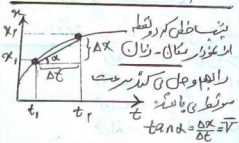 x
x₂
x₁
Δx
α
Δt
t₁
t₂
t
شیب خطی که دو نقطه
از نمودار مکان - زمان
را بهم وصل می کند سرعت
متوسط می باشد
tanα = Δx/Δt = V̄